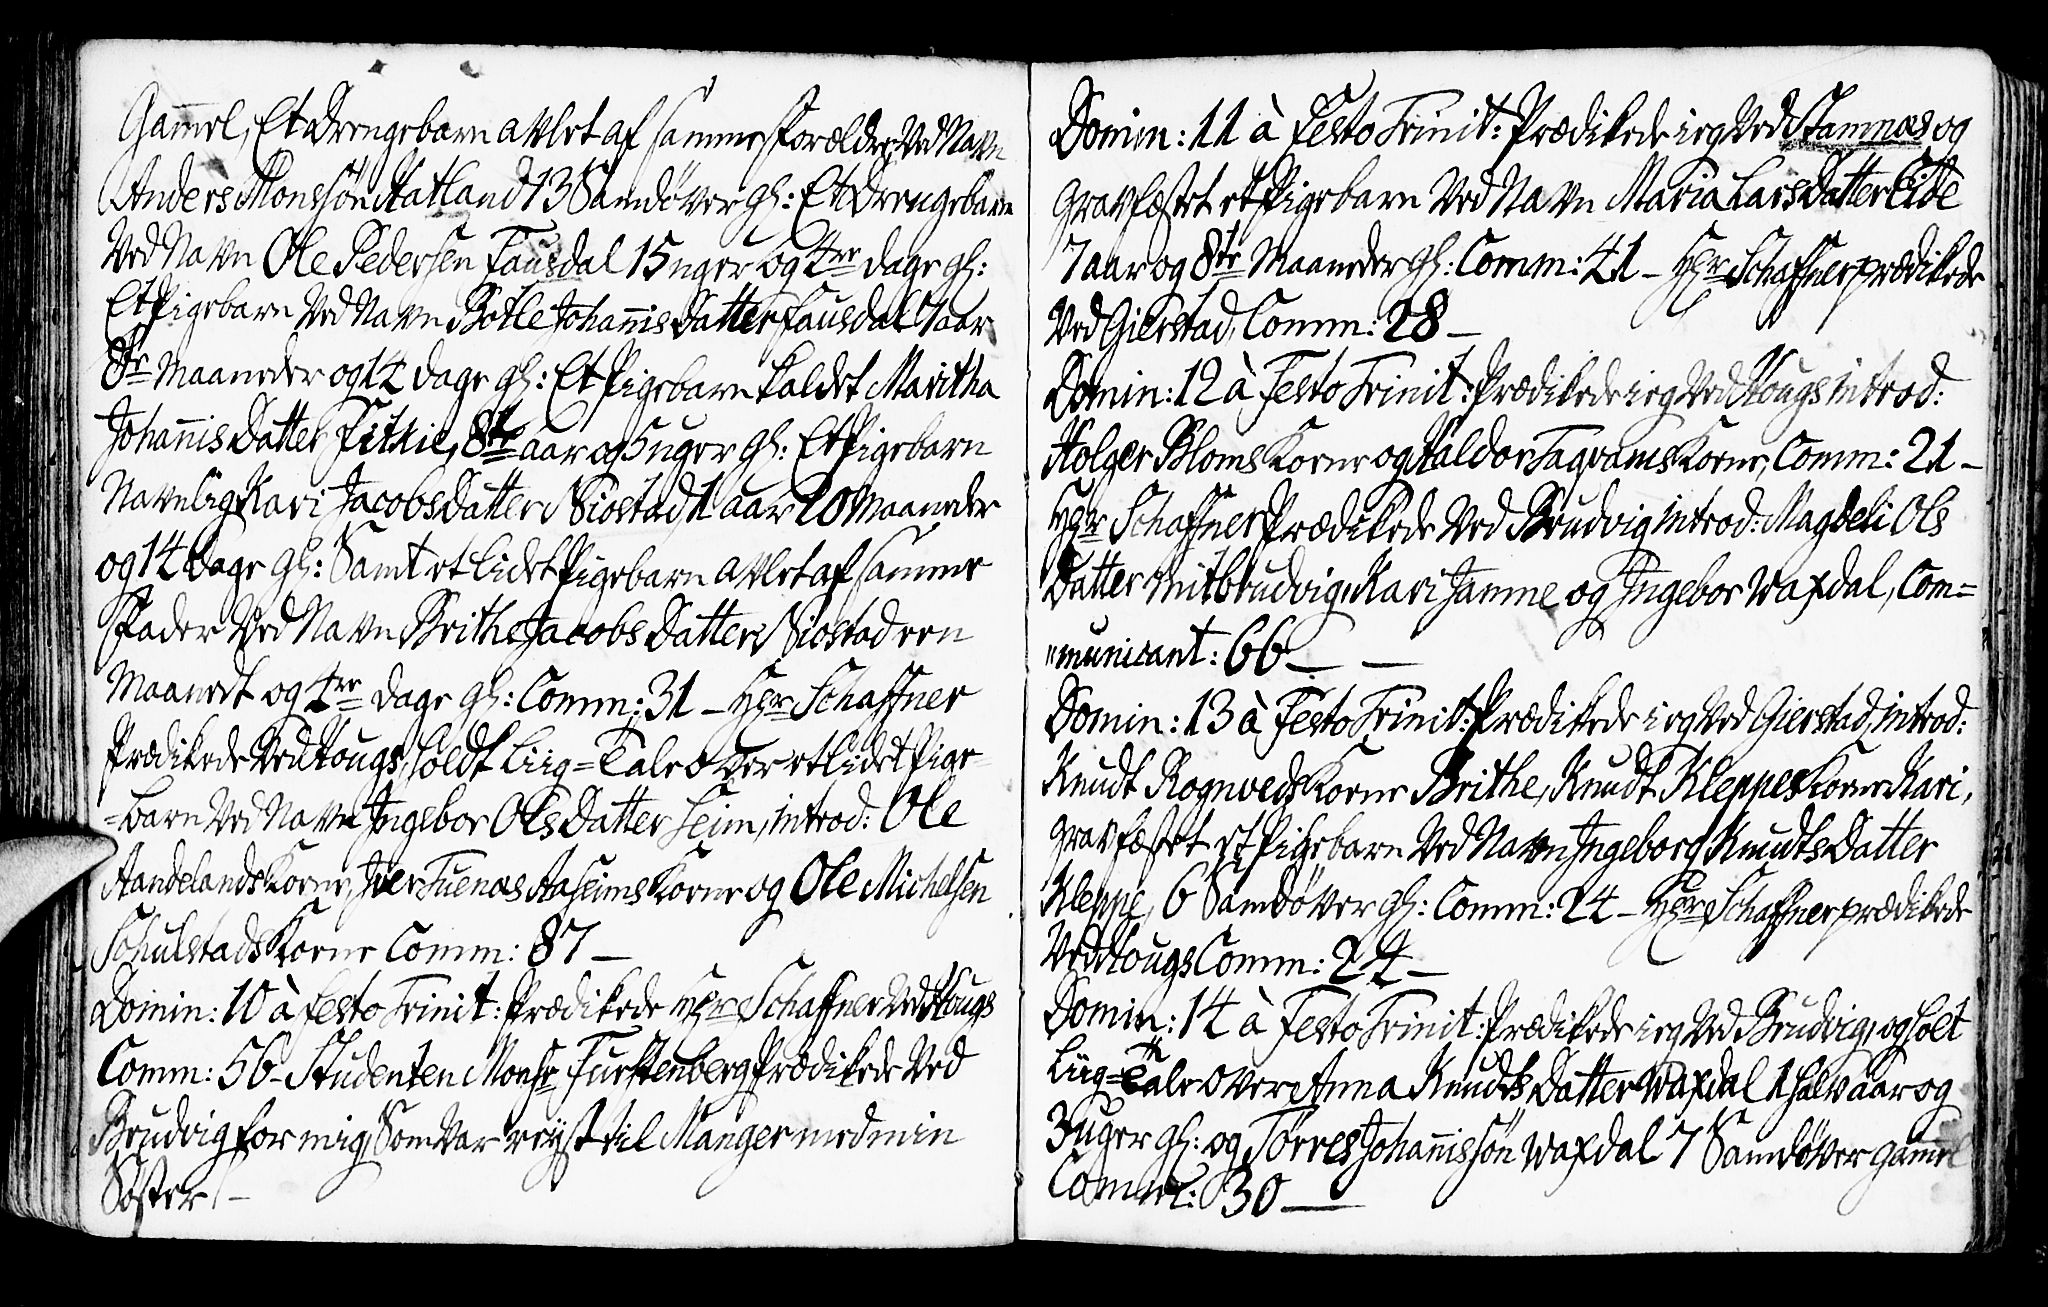 Gam̄el, Et Drengebarn avlet af samme Forældre ved Navn
Anders Monssøn Hatland 13 Samdøver gl: Et Drengebarn
ved Navn Ole Pedersen Fausdal 15 uger og 4re dage gl:
Et Pigebarn ved Navn Botle Johan̄is Datter Fausdal 7 aar
8te Maaneder og 14 dage gl: Et Pigebarn kaldet Maritha
Johan̄is Datter 8te aar og 5 uger gl: Et Pigebarn
Navnlig Kari Jacobs Datter Siostad 1 aar 10 Maaneder
og 14 dage gl: Samt et lidet Pigebarn avlet af samme
Fader ved Navn Brithe Jacobs Datter Siostad een
Maanedt og 4re dage gl: Comm: 31 – Hr Schaffner
Prædikede ved Hougs, holdt Liig=Tale over et lidet Pige=
=barn ved Navn Ingebor Ols Datter Seim, introd: Ole
Aandelands Kone, Iver Tuenæs Aaseims Kone og Ole Michelsen
Schulstads Kone Comm: 87 –
Domin: 10 à Festo Trinit: Prædikede Hr Schaffner ved Hougs
Comm: 56 – Studenten Monsr Furstenberg Prædikede ved
Brudvig for mig, Som var reyst til Manger med min
Søster –
Domin: 11 à Festo Trinit: Prædikede ieg ved Stamnæs og
gravfæstet et Pigebarn ved Navn Maria Lars Datter Eide
7 aar og 8te Maaneder gl: Comm: 41 – Hr Schaffner prædikede
ved Gierstad, Comm: 28 –
Domin: 12 à Festo Trinit: Prædikede ieg ved Hougs introd:
Holger Bloms Kone og Haldor Tagvams Kone, Comm: 21 –
Hr Schaffner Prædikede ved Brudvig introd: Magdeli Ols
Datter Mitbrudvig, Kari Jamne og Ingebor Waxdal, Com=
"municant: 66 – –
Domin: 13 à Festo Trinit: Prædikede ieg ved Gierstad, introd:
Knudt Rognveds Kone Brithe, Knudt Kleppes Kone Kari,
gravfæstet et Pigebarn ved Navn Ingeborg Knudts Datter
Kleppe, 6 Samdøver gl: Comm: 24 – Hr Schaffner prædikede
ved Hougs Comm: 24 –
Domin: 14 à Festo Trinit: Prædikede ieg ved Brudvig, og holt
Liig=Tale over Anna Knudts Datter Waxdal 1 halv aar og
3 uger gl: og Tørres Johan̄issøn Waxdal 7 Samdøver gam̄el
Comm: 30 –